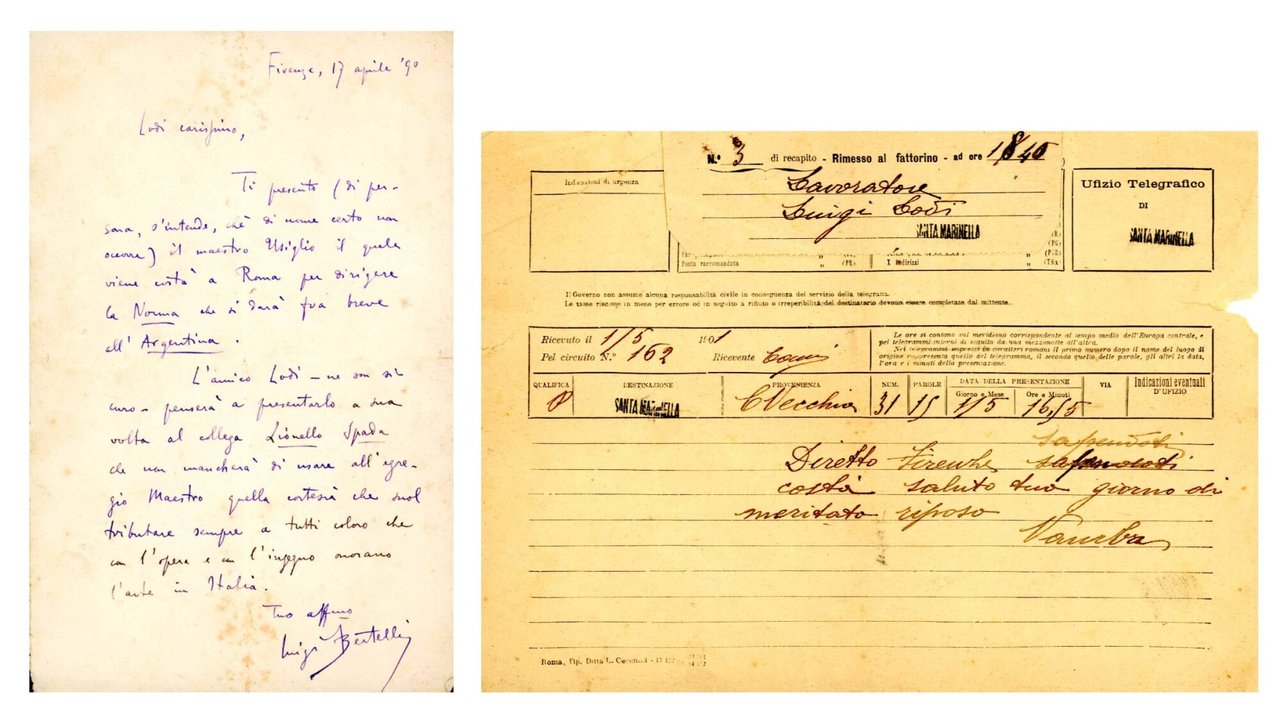 Firenze, 17 aprile '90
Lodi carissimo,
Ti presento (di per-
sona, s'intende, chè di nome certo non
occorre) il maestro Usiglio il quale
viene costà a Roma per dirigere
la Norma che si darà fra breve
all'Argentina.
L'amico Lodi – ne son si-
curo – penserà a presentarlo a sua
volta al collega Lionello Spada
che non mancherà di usare all'egre-
gio Maestro quella cortesia che suol
tributare sempre a tutti coloro che
con l'opera e con l'ingegno onorano
l'arte in Italia.
Tuo affmo
Luigi Bertelli
N.º 3 di recapito - Rimesso al fattorino - ad ore 18/40
Indicazioni di urgenza
Lavoratore
Luigi Lodi
SANTA MARINELLA
Posta raccomandata " (PR) X indirizzi " (TMx)
Ufizio Telegrafico
DI
SANTA MARINELLA
Il Governo non assume alcuna responsabilità civile in conseguenza del servizio della telegrafia.
Le tasse riscosse in meno per errore od in seguito a rifiuto o irreperibilità del destinatario devono essere completate dal mittente.
Ricevuto il 1/5 1901
Pel circuito N.º 162 Ricevente
Le ore si contano sul meridiano corrispondente al tempo medio dell'Europa centrale, e
pei telegrammi interni di seguito da una mezzanotte all'altra.
Nei telegrammi impressi in caratteri romani il primo numero dopo il nome del luogo di
origine rappresenta quello del telegramma, il secondo quello delle parole, gli altri la data,
l'ora e i minuti della presentazione.
QUALIFICA DESTINAZIONE PROVENIENZA NUM. PAROLE DATA DELLA PRESENTAZIONE VIA Indicazioni eventuali
Giorno e Mese Ore e Minuti D'UFIZIO
SANTA MARINELLA CVecchia 31 15 1/5 16,55
sapendoti
Diretto Firenze sapendoti
costà saluto tuo giorno di
meritato riposo
Vamba
Roma, Tip. Ditta L. Cecchini